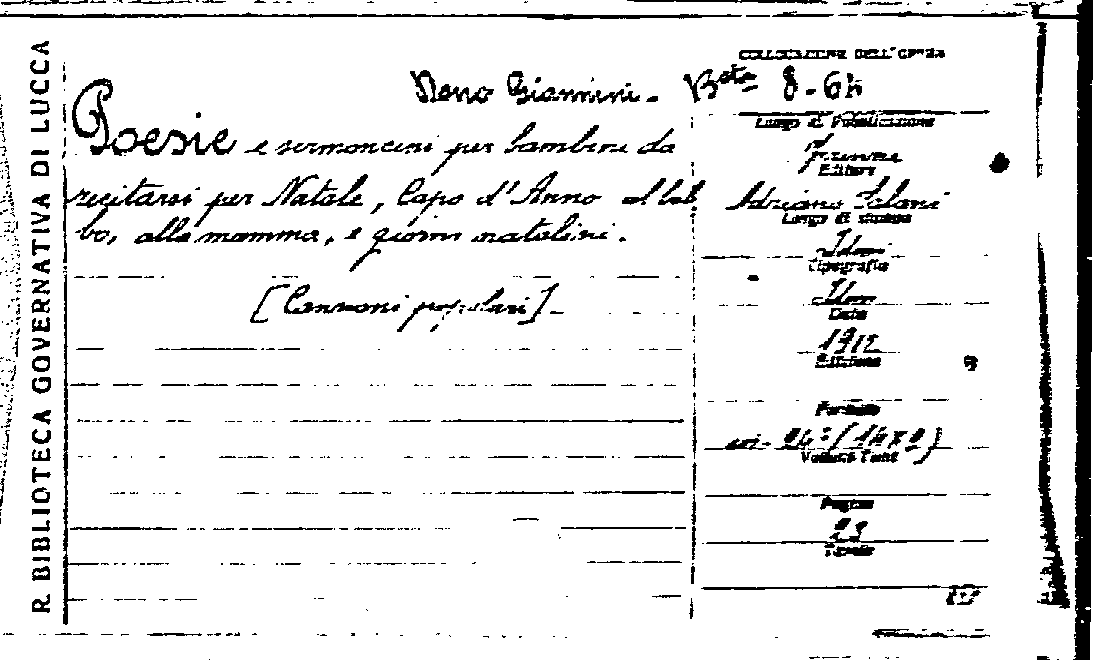 R. BIBLIOTECA GOVERNATIVA DI LUCCA
COLLOCAZIONE DELL'OPERA
Giannini. Bta 8-64
Poesie e sermoncini per bambini da
recitarsi per Natale, Capo d'Anno al bab
bo, alla mamma, e giorni natalini.
[Canzoni popolari]
Luogo di Pubblicazione
Firenze
Editore
Adriano Salani
Luogo di stampa
Idem
Tipografia
Idem
Data
1912
Edizione
Formato
in-24° (14x9)
Volumi Tomi
Pagine
23
Tavole